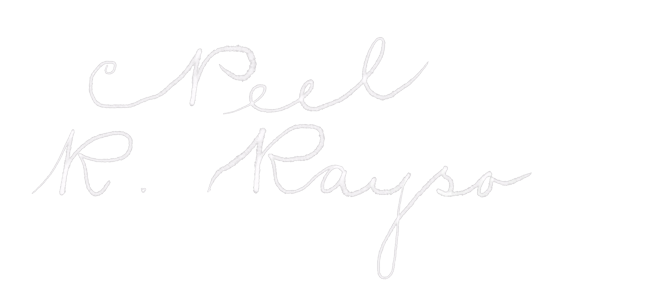 Peel
R. Rayso